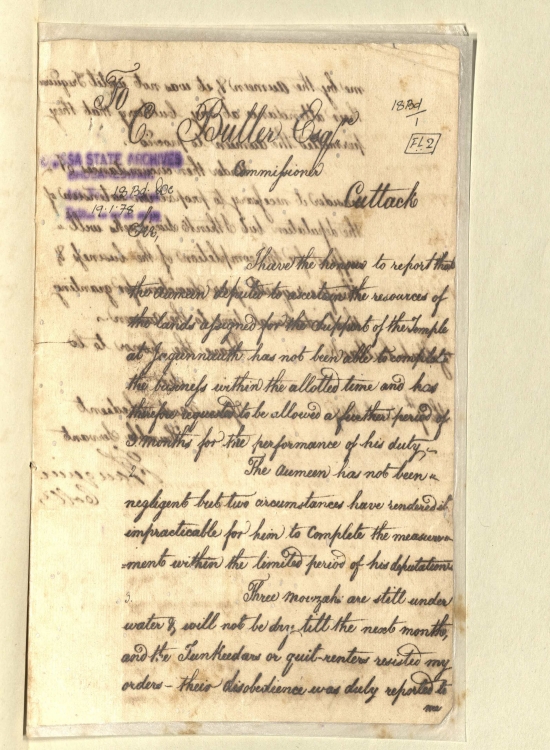 To
C. Buller Esqr
Commissioner
Cuttack
18 Bd
1
Fl. 2
ORISSA STATE ARCHIVES
18 Bd. Doc
19.1.78
Sir,
I have the honour to report that
the Aumeen deputed to ascertain the resources of
the lands assigned for the Support of the Temple
at Jagunnauth has not been able to complete
the business within the allotted time and has
therefore requested to be allowed a further period of
3 months for the performance of his duty.
The Aumeen has not been
negligent but two circumstances have rendered it
impracticable for him to Complete the measure-
ment within the limited period of his deputation.
3. Three mowzahs are still under
water & will not be dry till the next month,
and the Tunkeedars or quit-renters resisted my
orders - their disobedience was duly reported to
me